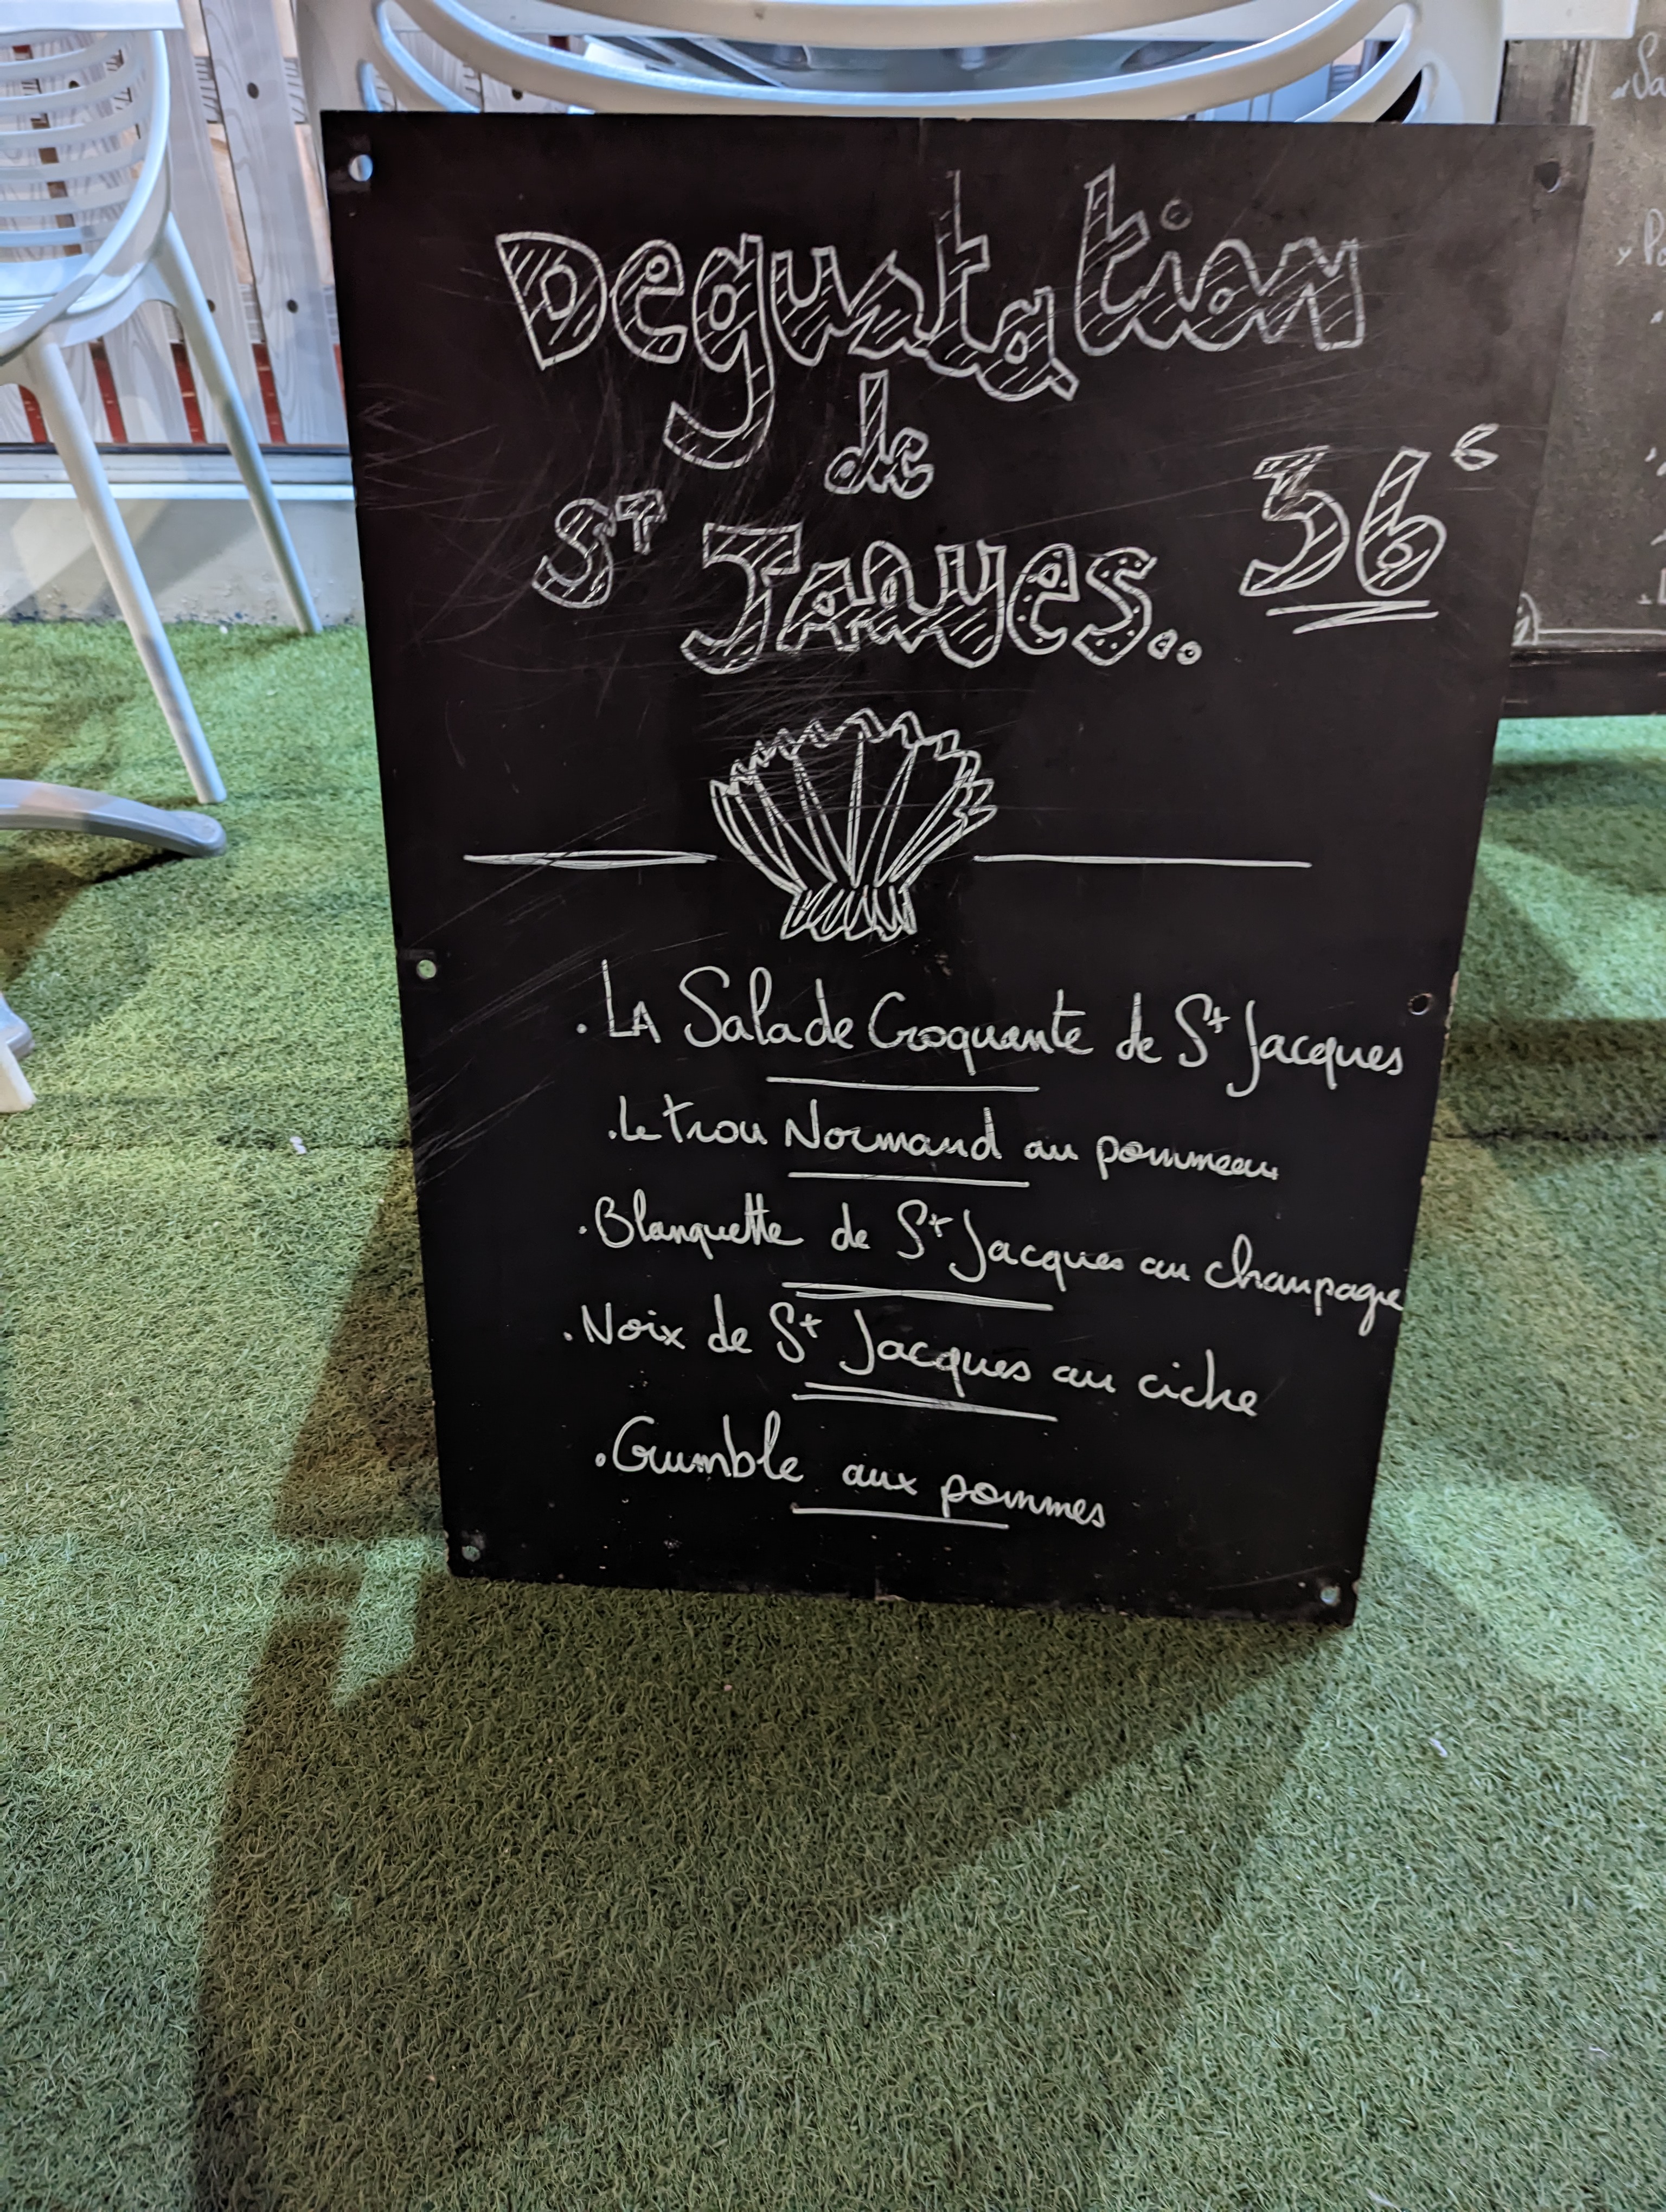 Degustation
de
ST JAQUES.. 36€
. LA Salade Croquante de St Jacques
. Le trou Normand au pommeau
. Blanquette de St Jacques au champagne
. Noix de St Jacques au cidre
. Crumble aux pommes